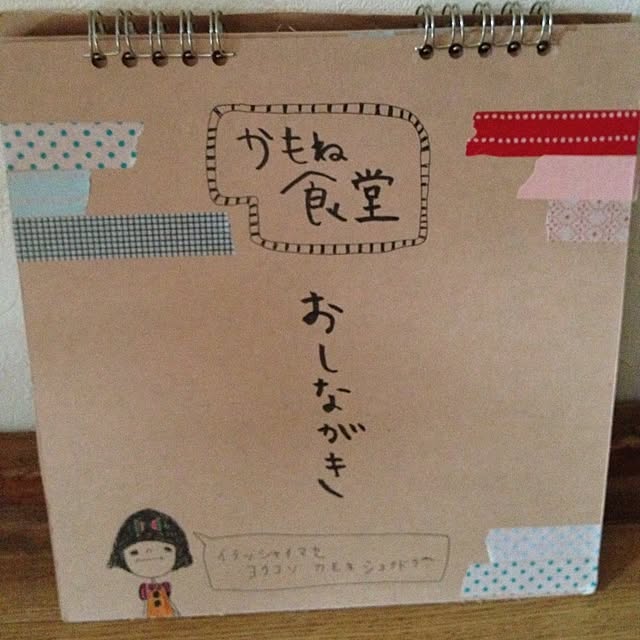 かもね
食堂
おしながき
イラッシャイマセ
ヨウコソ カモネショクドウヘ